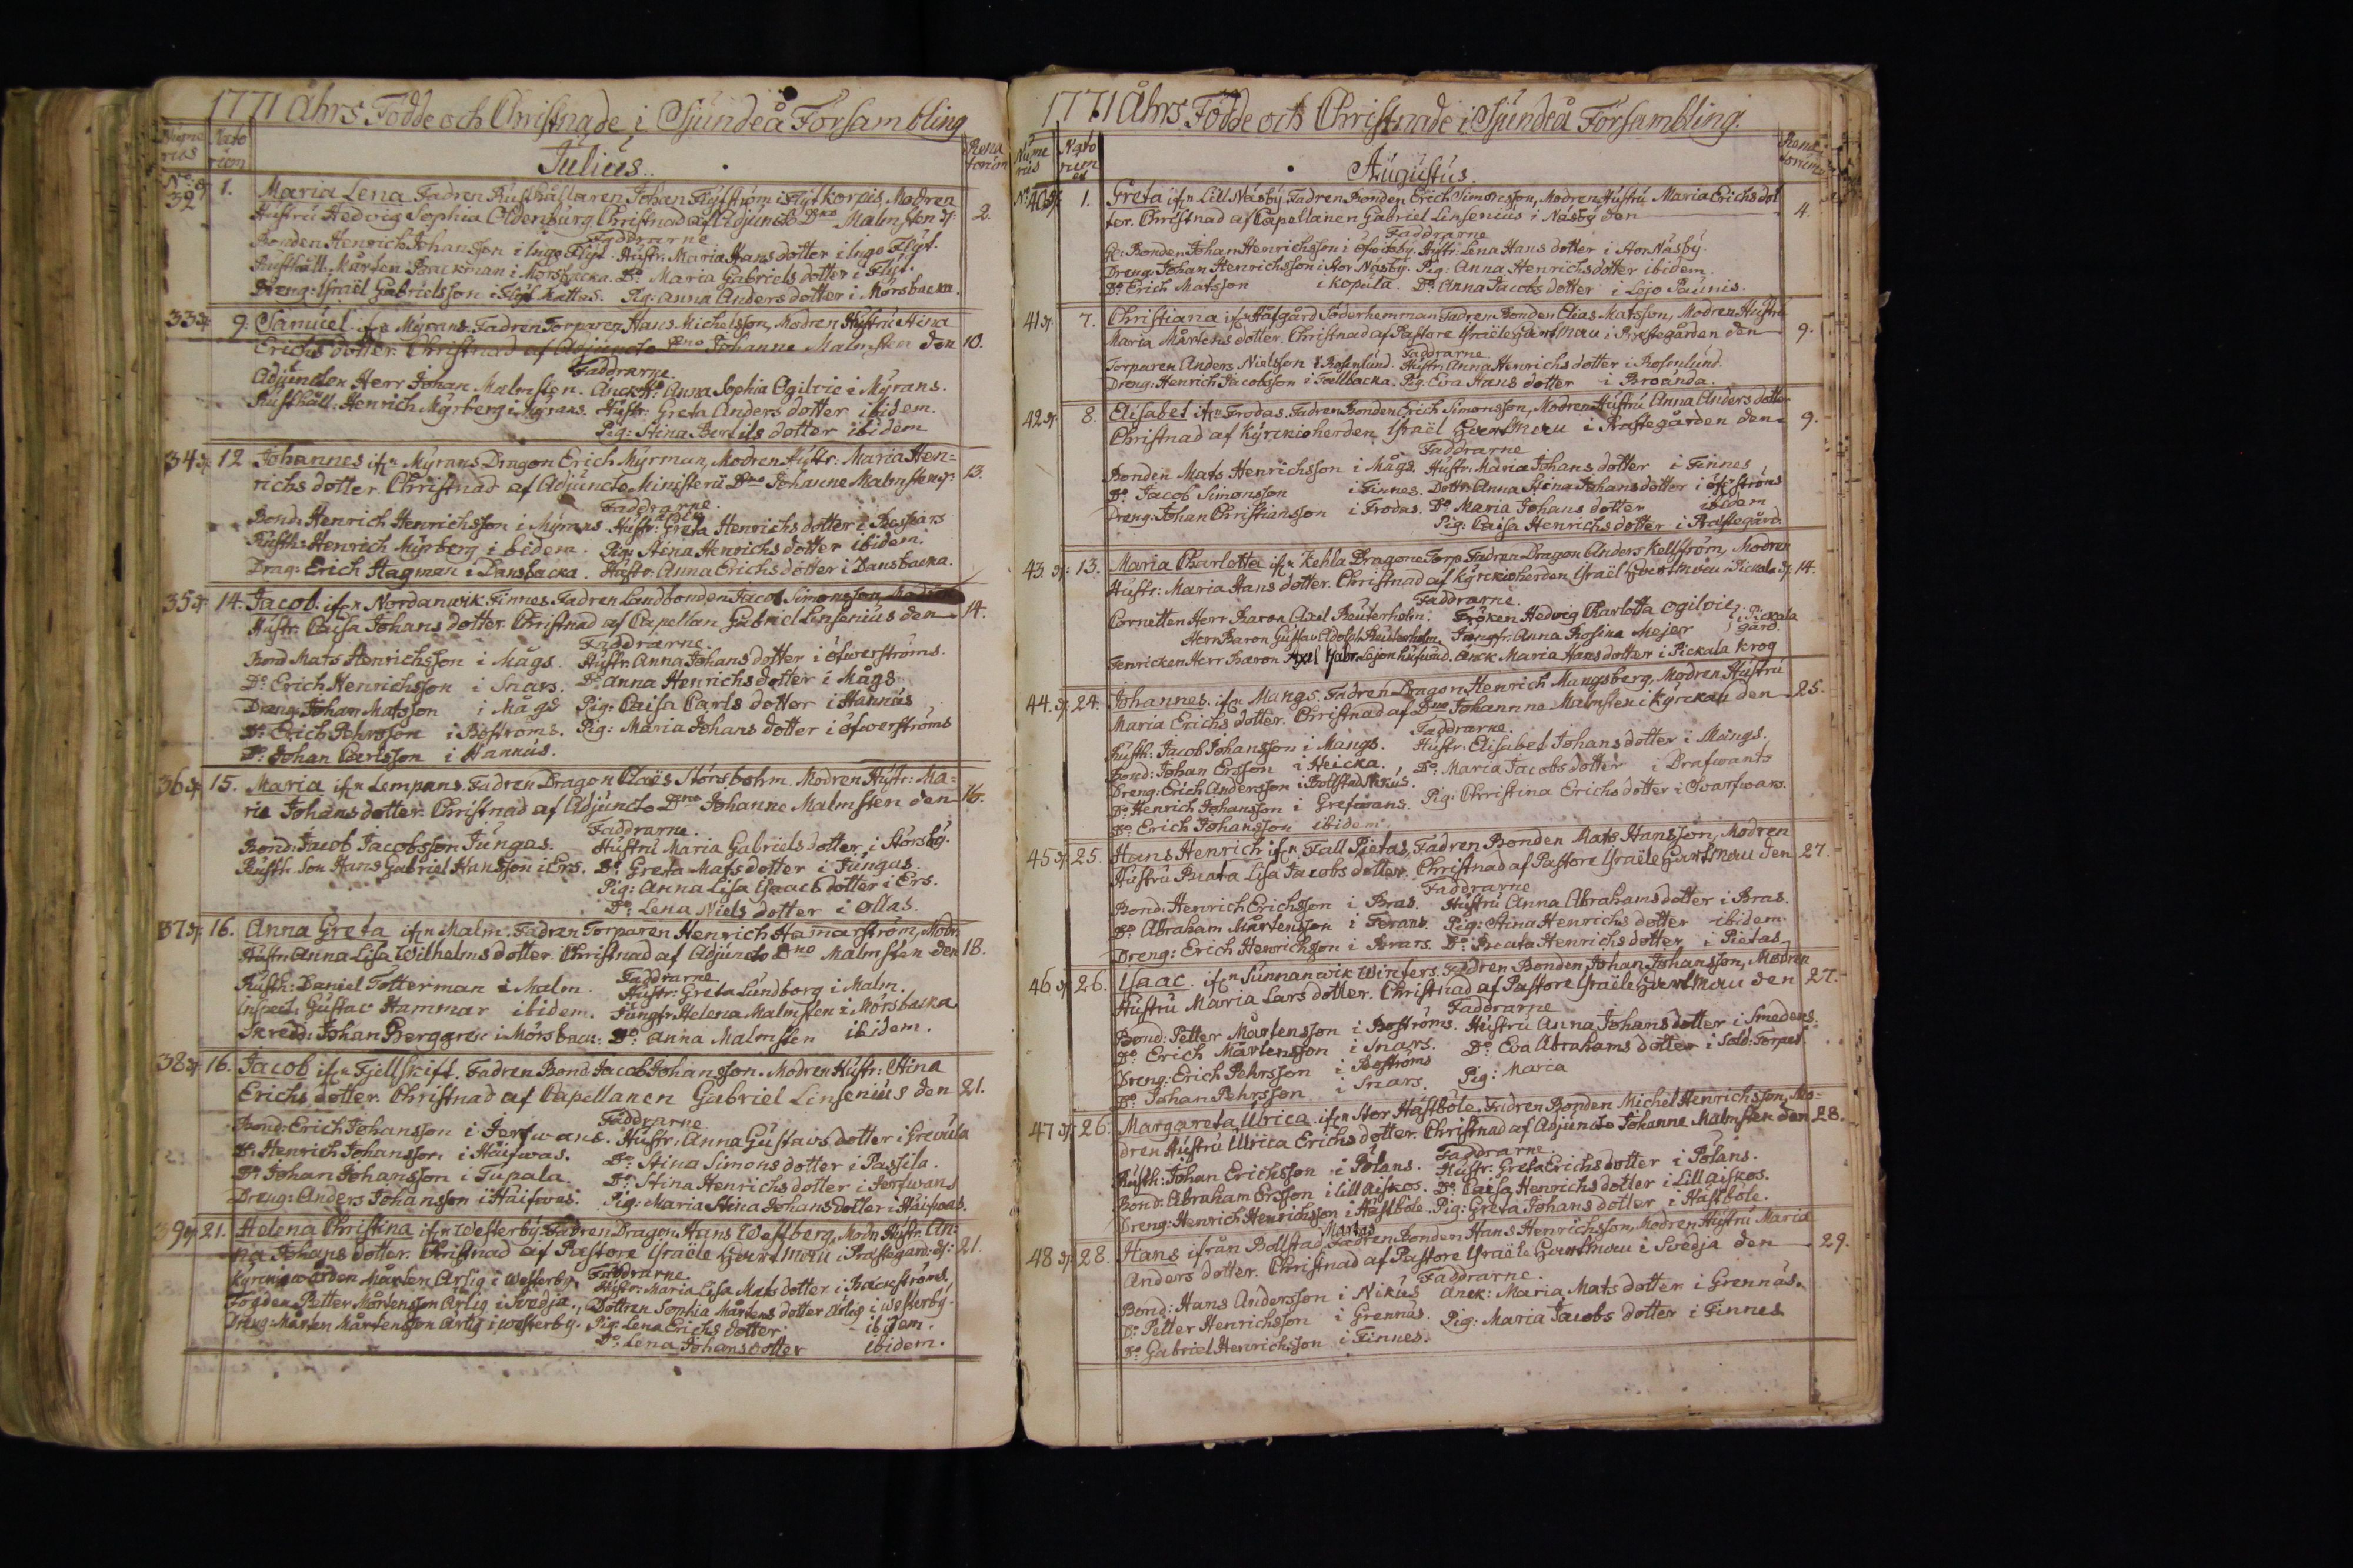 1771 Åhrs Födde och Christnade i Sjundeå Försambling
Nume rus
Nato rum
Rena torum
Julius.
No 32 1. Maria Lena Fadren Rusthållaren Johan Flytström i Flyt korpis, Modren
Hustru Hedvig Sophia Oldenburg. Christnad af Adjuncto Dno Malmsten d: 2.
Faddrarne
Bonden Henrich Johansson i Inge Flyt. Hustr: Maria Hans dotter i Inge Flyt.
Rusthåll: Mårten Backman i Morsbacka. Do Maria Gabriels dotter i Flyt.
Dreng: Israël Gabrielsson i Flyt Mattas. Pig: Anna Anders dotter i Morsbacka.
33 9. Samuel ifrn Myrans. Fadren Torparen Hans Michelsson, Modren Hustru Stina
Erichs dotter. Christnad af Adjuncto Dno Johanne Malmsten den 10.
Faddrarne
Adjuncten Herr Johan Malmsten. Anna Sophia Ogilvie i Myrans.
Rusthåll: Henrich Myrberg i Myrans. Hustr: Greta Anders dotter ibidem.
Pig: Stina Bertils dotter ibidem
34 12 Johannes ifrn Myrans Dragon Erich Myrman, Modren Hustr: Maria Hen=
richs dotter. Christnad af Adjuncto Ministerii Dno Johanne Malmsten d: 13.
Faddrarne.
Bond: Henrich Henrichsson i Myrans Hustr: Greta Henrichs dotter i Bespars
Rusth: Henrich Myrberg ibidem. Pig: Stina Henrichs dotter ibidem.
Drag: Erich Hagman i Dansbacka. Hustr: Anna Erichs dotter i Dansbacka.
35 14. Jacob ifrn Nordanwik Finnes. Fadren Landbonden Jacob Simonsson, Modren
Hustr: Caisa Johans dotter. Christnad af Capellan Gabriel Linsenius den 14.
Faddrarne.
Bond Mats Henrichsson i Mågs. Hustr: Anna Johans dotter i öfwerströms.
Do Erich Henrichsson i Snars. Do Anna Henrichs dotter i Mågs
Dreng: Johan Matsson i Mågs Pig: Caisa Carls dotter i Hannus
Do Erich Pehrsson i Boströms. Pig: Maria Johans dotter i öfwerströms
Do Johan Carlsson i Hannus.
36 15. Maria ifrn Lempans. Fadren Dragon Claës Storsbohm. Modren Hustr: Ma=
ria Johans dotter. Christnad af Adjuncto Dno Johanne Malmsten den 16.
Faddrarne.
Bond: Jacob Jacobsson Jungas. Hustru Maria Gabriels dotter i Storsby.
Rusth. Son Hans Gabriel Hansson i Ers. Do Greta Mats dotter i Jungas.
Pig: Anna Lisa Isaacs dotter i Ers.
Do: Lena Niels dotter i Ollas.
37 16. Anna Greta ifrn Malm. Fadren Torparen Henrich Hamarström, Modr:
Hustr: Anna Lisa Wilhelms dotter. Christnad af Adjuncto Dno Malmsten den 18.
Faddrarne
Rusth: Daniel Totterman i Malm. Hustr: Greta Lundborg i Malm.
Inspect. Gustav Hammar ibidem. Jungfr: Helena Malmsten i Morsbacka
Skredd: Johan Berggren i Morsback: Do Anna Malmsten ibidem.
38 16. Jacob ifrn Fjellskift. Fadren Bond: Jacob Johansson. Modren Hustr: Stina
Erichs dotter. Christnad af Capellanen Gabriel Linsenius den 21.
Faddrarne
Bond: Erich Johansson i Jerfwans. Hustr: Anna Gustavs dotter i Grevula
Do Henrich Johansson i Haifwas. Do Stina Simons dotter i Passila.
Do Johan Johansson i Tupala. Do: Stina Henrichs dotter i Jerfwans
Dreng: Anders Johansson i Haifwas. Pig: Maria Stina Johans dotter i Haifwas.
39 21. Helena Christina ifrn Westerby. Fadren Dragon Hans Westberg, Modrn Hustr: An:
na Johans dotter. Christnad af Pastore Israële Gvartmau i Prästegård: d: 21.
Faddrarne.
Kyrkiowärden Mårten Ärlig i Westerby. Hustr: Maria Lisa Mats dotter i Backströms.
Fogden Petter Mårtensson Ärlig i Svedja. Dottren Sophia Mårtens dotter Ärlig i Westerby.
Dreng: Mårten Mårtensson Ärlig i Westerby. Pig: Lena Erichs dotter ibidem.
Do: Lena Johans dotter ibidem.
1771 Åhrs Födde och Christnade i Sjundeå Försambling.
Nume rus
Nato rum
Rena torum
Augustus.
No 40 1. Greta ifrn Lill Näsby. Fadren Bonden Erich Simonsson, Modren Hustru Maria Erichs dot
ter. Christnad af Capellanen Gabriel Linsenius i Näsby den 4.
Faddrarne
Bonden Johan Henrichsson i Hustr: Lena Hans dotter i Stor Näsby.
Dreng: Johan Henrichsson i Stor Näsby. Pig: Anna Henrichs dotter ibidem.
Do Erich Matsson i Kopula. Do: Anna Jacobs dotter i Lojo Paunis.
41 7. Christiana ifrn Hafgård Söderhemman. Fadren Bonden Elias Matsson, Modren Hustru
Maria Mårtens dotter. Christnad af Pastore Israële Gvartmau i Prästegården den 9.
Faddrarne.
Torparen Anders Nielsson i Rosenlund. Hustr: Anna Henrichs dotter i Rosenlund.
Dreng: Henrich Jacobsson i Tallbacka. Pig: Eva Hans dotter i Broända.
42 8. Elisabet ifrn Frodas. Fadren Bonden Erich Simonsson, Modren Hustru Anna Anders dotter
Christnad af Kyrckioherden Israël Gvartmau i Prästegården den 9.
Faddrarne
Bonden Mats Henrichsson i Mågs. Hustr: Maria Johans dotter i Finnes
Do: Jacob Simonsson i Finnes. Dottr: Anna Stina Johans dotter i öfrströms
Dreng: Johan Christiansson i Frodas. Do Maria Johans dotter ibidem
Pig: Caisa Henrichs dotter i Prästegård.
43. 13. Maria Charlotta ifrn Kehla Dragone Torp. Fadren Dragon Anders Kellström, Modren
Hustr: Maria Hans dotter. Christnad af Kyrckioherden Israël Gvartmau i Pickala d: 14.
Faddrarne.
Cornetten Herr Baron Axel Reuterholm. Fröken Hedvig Charlotta Ogilvie i Pickala
Herr Baron Gustav Adolph Reuterholm, Jungfr: Anna Rosina Mejer gård.
Fenricken Herr Baron Axel Gabr. Lejonhufvud. Enck Maria Hans dotter i Pickala krog
44. 24. Johannes ifrn Mangs. Fadren Dragon Henrich Mangsberg, Modren Hustru
Maria Erichs dotter. Christnad af Dno Johannne Malmsten i Kyrckan den 25.
Faddrarne.
Rusth: Jacob Johansson i Mangs. Hustr: Elisabet Johans dotter i Mangs.
Bond: Johan Ersson i Heicka. Do: Maria Jacobs dotter i Drafwants
Dreng: Erich Andersson i Bollstad Nikus. Pig: Christina Erichs dotter i Svartwars.
Do Henrich Johansson i Grefwans.
Do: Erich Johansson ibidem.
45 25. Hans Henrich ifrn Fall Pietas, Fadren Bonden Mats Hansson, Modren
Hustru Beata Lisa Jacobs dotter. Christnad af Pastore Israële Gvartmau den 27.
Faddrarne
Bond: Henrich Erichsson i Bras. Hustru Anna Abrahams dotter i Bras.
Do Abraham Mårtensson i Ferans. Pig: Stina Henrichs dotter ibidem.
Dreng: Erich Henrichsson i Do: Beata Henrichs dotter i Pietas.
46 26. Isaac ifrn Sunnanwik Winters. Fadren Bonden Johan Johansson, Modren
Hustru Maria Lars dotter. Christnad af Pastore Israële Gvartmau den 27.
Faddrarne
Bond: Petter Mårtensson i Boströms. Hustru Anna Johans dotter i Smedens.
Do Erich Mårtensson i Snars. Do Eva Abrahams dotter i Sold: Torpet.
Dreng: Erich Pehrsson i Boströms Pig: Maria
Do Johan Pehrsson i Snars.
47 26. Margareta Ulrica ifrn Stor Hästböle. Fadren Bonden Michel Henrichsson, Mo=
dren Hustru Ulrica Erichs dotter. Christnad af Adjuncto Johanne Malmsten den 28.
Faddrarne.
Rusth: Johan Erichsson i Polans. Hustr: Greta Erichs dotter i Polans.
Bond: Abraham Ersson i Lill Aiskos. Do Caisa Henrichs dotter i Lill Aiskos.
Dreng: Henrich Henrichsson i Hästböle. Pig: Greta Johans dotter i Hästböle.
48 28. Hans ifrån Bollstad Martas Fadren Bonden Hans Henrichsson, Modren Hustru Maria
Anders dotter. Christnad af Pastore Israële Gvartmau i Svedja den 29.
Faddrarne.
Bond: Hans Andersson i Nikus Enck: Maria Mats dotter i Grennäs.
Do Petter Henrichsson i Grennäs. Pig: Maria Jacobs dotter i Finnes
Do Gabriel Henrichsson i Finnes.